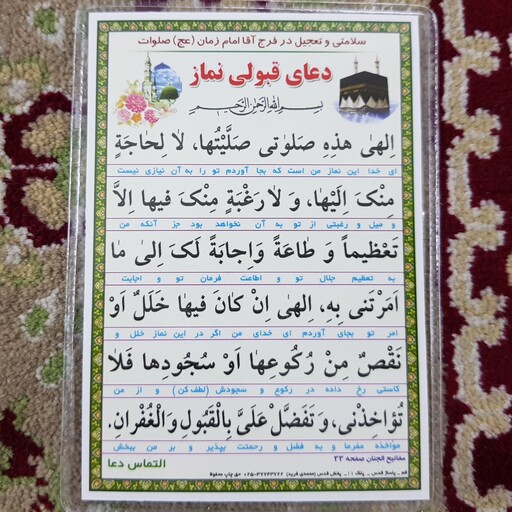 سلامتی و تعجیل در فرج آقا امام زمان (عج) صلوات
دعای قبولی نماز
بسم الله الرحمن الرحیم
اِلهٰی هٰذِهِ صَلوٰتی صَلَّیْتُها، لاٰ لِحٰاجَةٍ
ای خدا این نماز من است که بجا آوردم تو را به آن نیازی نیست
مِنْکَ اِلَیْهٰا، وَ لاٰ رَغْبَةٍ مِنْکَ فیهٰا اِلاَّ
و میل و رغبتی از تو به آن نخواهد بود جز آنکه من
تَعْظیماً وَ طٰاعَةً وَ اِجابَةً لَکَ اِلیٰ مٰا
به تعظیم جلال تو و اطاعت فرمان تو و اجابت
اَمَرْتَنی بِهِ، اِلهٰی اِنْ کٰانَ فیهٰا خَلَلٌ اَوْ
امر تو بجای آوردم ای خدای من اگر در این نماز خلل و
نَقْصٌ مِنْ رُکُوعِهٰا اَوْ سُجُودِهٰا فَلاٰ
کاستی رخ داده در رکوع و سجودش (لطف کن) و از من
تُؤاخِذْنی، وَ تَفَضَّلْ عَلَیَّ بِالْقَبُولِ وَ الْغُفْرانِ.
مؤاخذه مفرما و به فضل و رحمتت بپذیر و بر من ببخش
مفاتیح الجنان صفحه ۲۳
التماس دعا